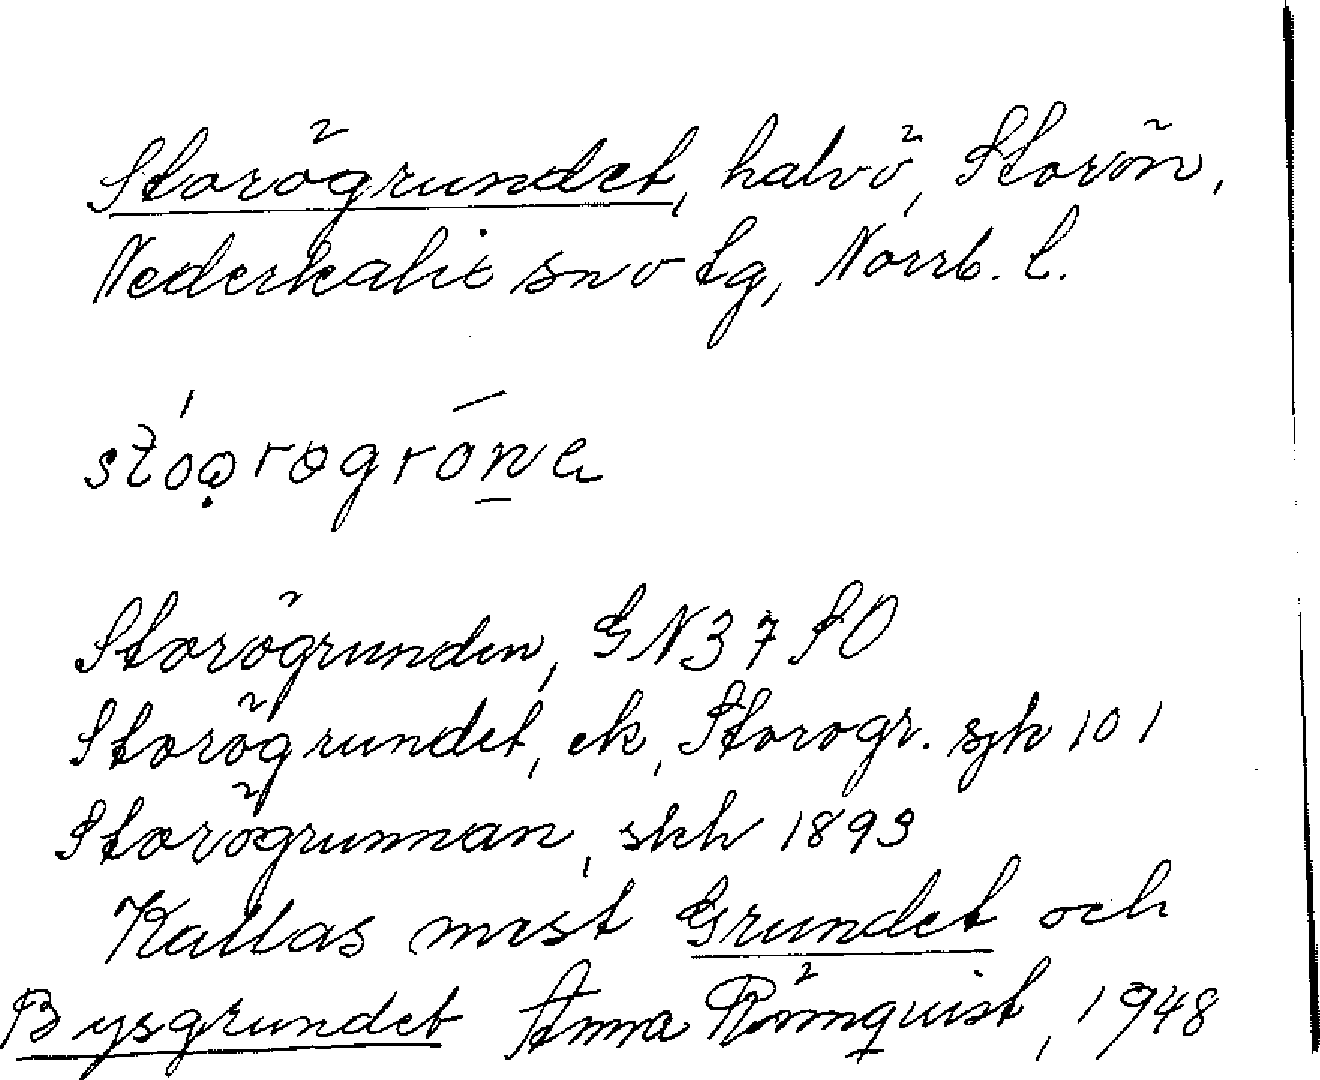 Storögrundet, halvö, Storön,
Nederkalix sn o tg, Norrb. l.
stóǫrogróna
Storögrunden, GN37 SO
Storögrundet, ek, Storögr. sjk 101
Storögrunnan, skh 1893
Kallas mest Grundet och
Bysgrundet Anna Römquist, 1948